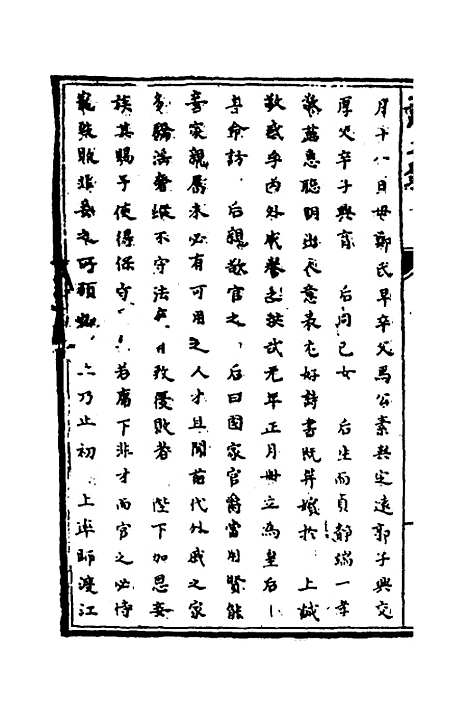 月十八日母鄭氏早卒父馬公素與定遠郭子興交
厚父卒子興育 后同己女 后生而貞靜端一孝
敬慈惠聰明出表意表尤好詩書既笄嬪於 上誠
敬感孚內外咸譽洪武元年正月冊立為皇后上
尋命訪 后親欲官之 后曰國家官爵當用賢能
妾家親屬未必有可用之人才且聞前代外戚之家
多驕淫奢縱不守法度以致覆敗者 陛下加恩妾
族其賜予使得保守 若庸下非才而官之必恃
寵致敗非妾之所願也 上乃止初 上率師渡江